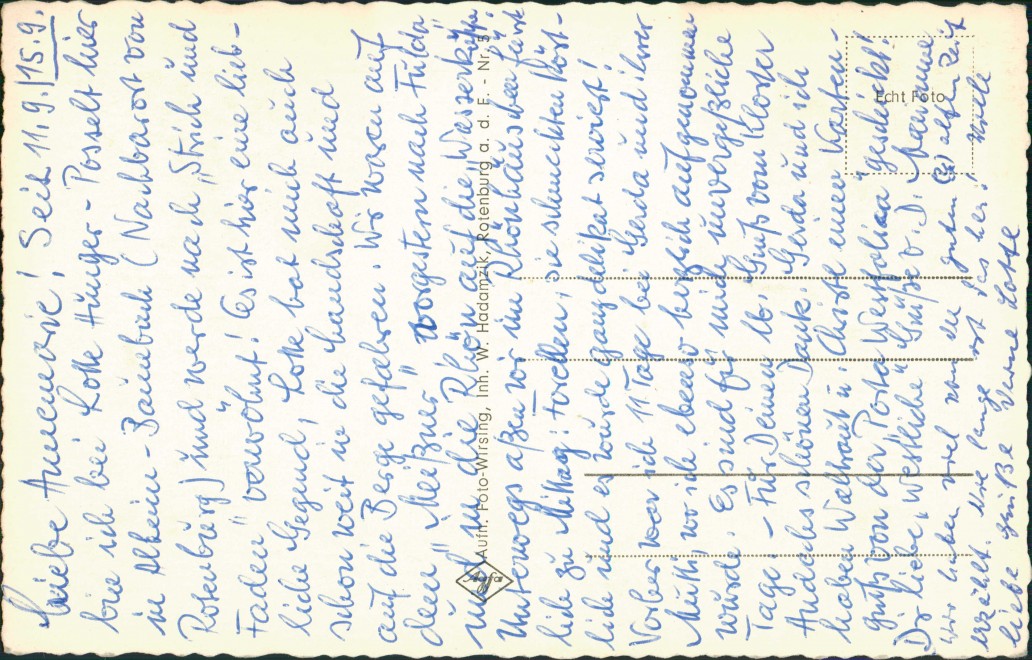 Liebe Annemarie! Seit 11.9./15.9.
bin ich bei Lotte Hünger-Posselt hier
in Alheim-Baumbach (Nachbarort von
Rotenburg) und werde nach „Strich und
Faden" verwöhnt! Es ist hier eine lieb-
liche Gegend, Lotte hat mich auch
schon weit in die Landschaft und
auf die Berge gefahren. Wir waren auf
dem „Meißner" vorgestern nach Fulda
und in die Rhön auf die Wasserkuppe
Unterwegs aßen wir im Rhönhäuschen fürst-
lich zu Mittag: Forellen, sie schmeckten köst-
lich und es wurde ganz delikat serviert!
Vorher war ich 11 Tage bei Gerda und ihrer
Mutti, wo ich ebenso herzlich aufgenommen
wurde. Es sind für mich unvergeßliche
Tage. - Für Deinen lb. Gruß vom Kloster
Andechs schönen Dank. Gerda und ich
haben Waltraut u. Christe einen Karten-
gruß von der Porta Westfalica geschickt!
Dir liebe, „westliche" Grüße v. D. Hanne
Wir haben viel von der guten alten Zeit
erzählt. Wie lange ist das her!
liebe Grüße Deine Lotte
Echt Foto
Aufn. Foto-Wirsing, Inh. W. Hadamzik, Rotenburg a. d. F. - Nr. 5
Agfa